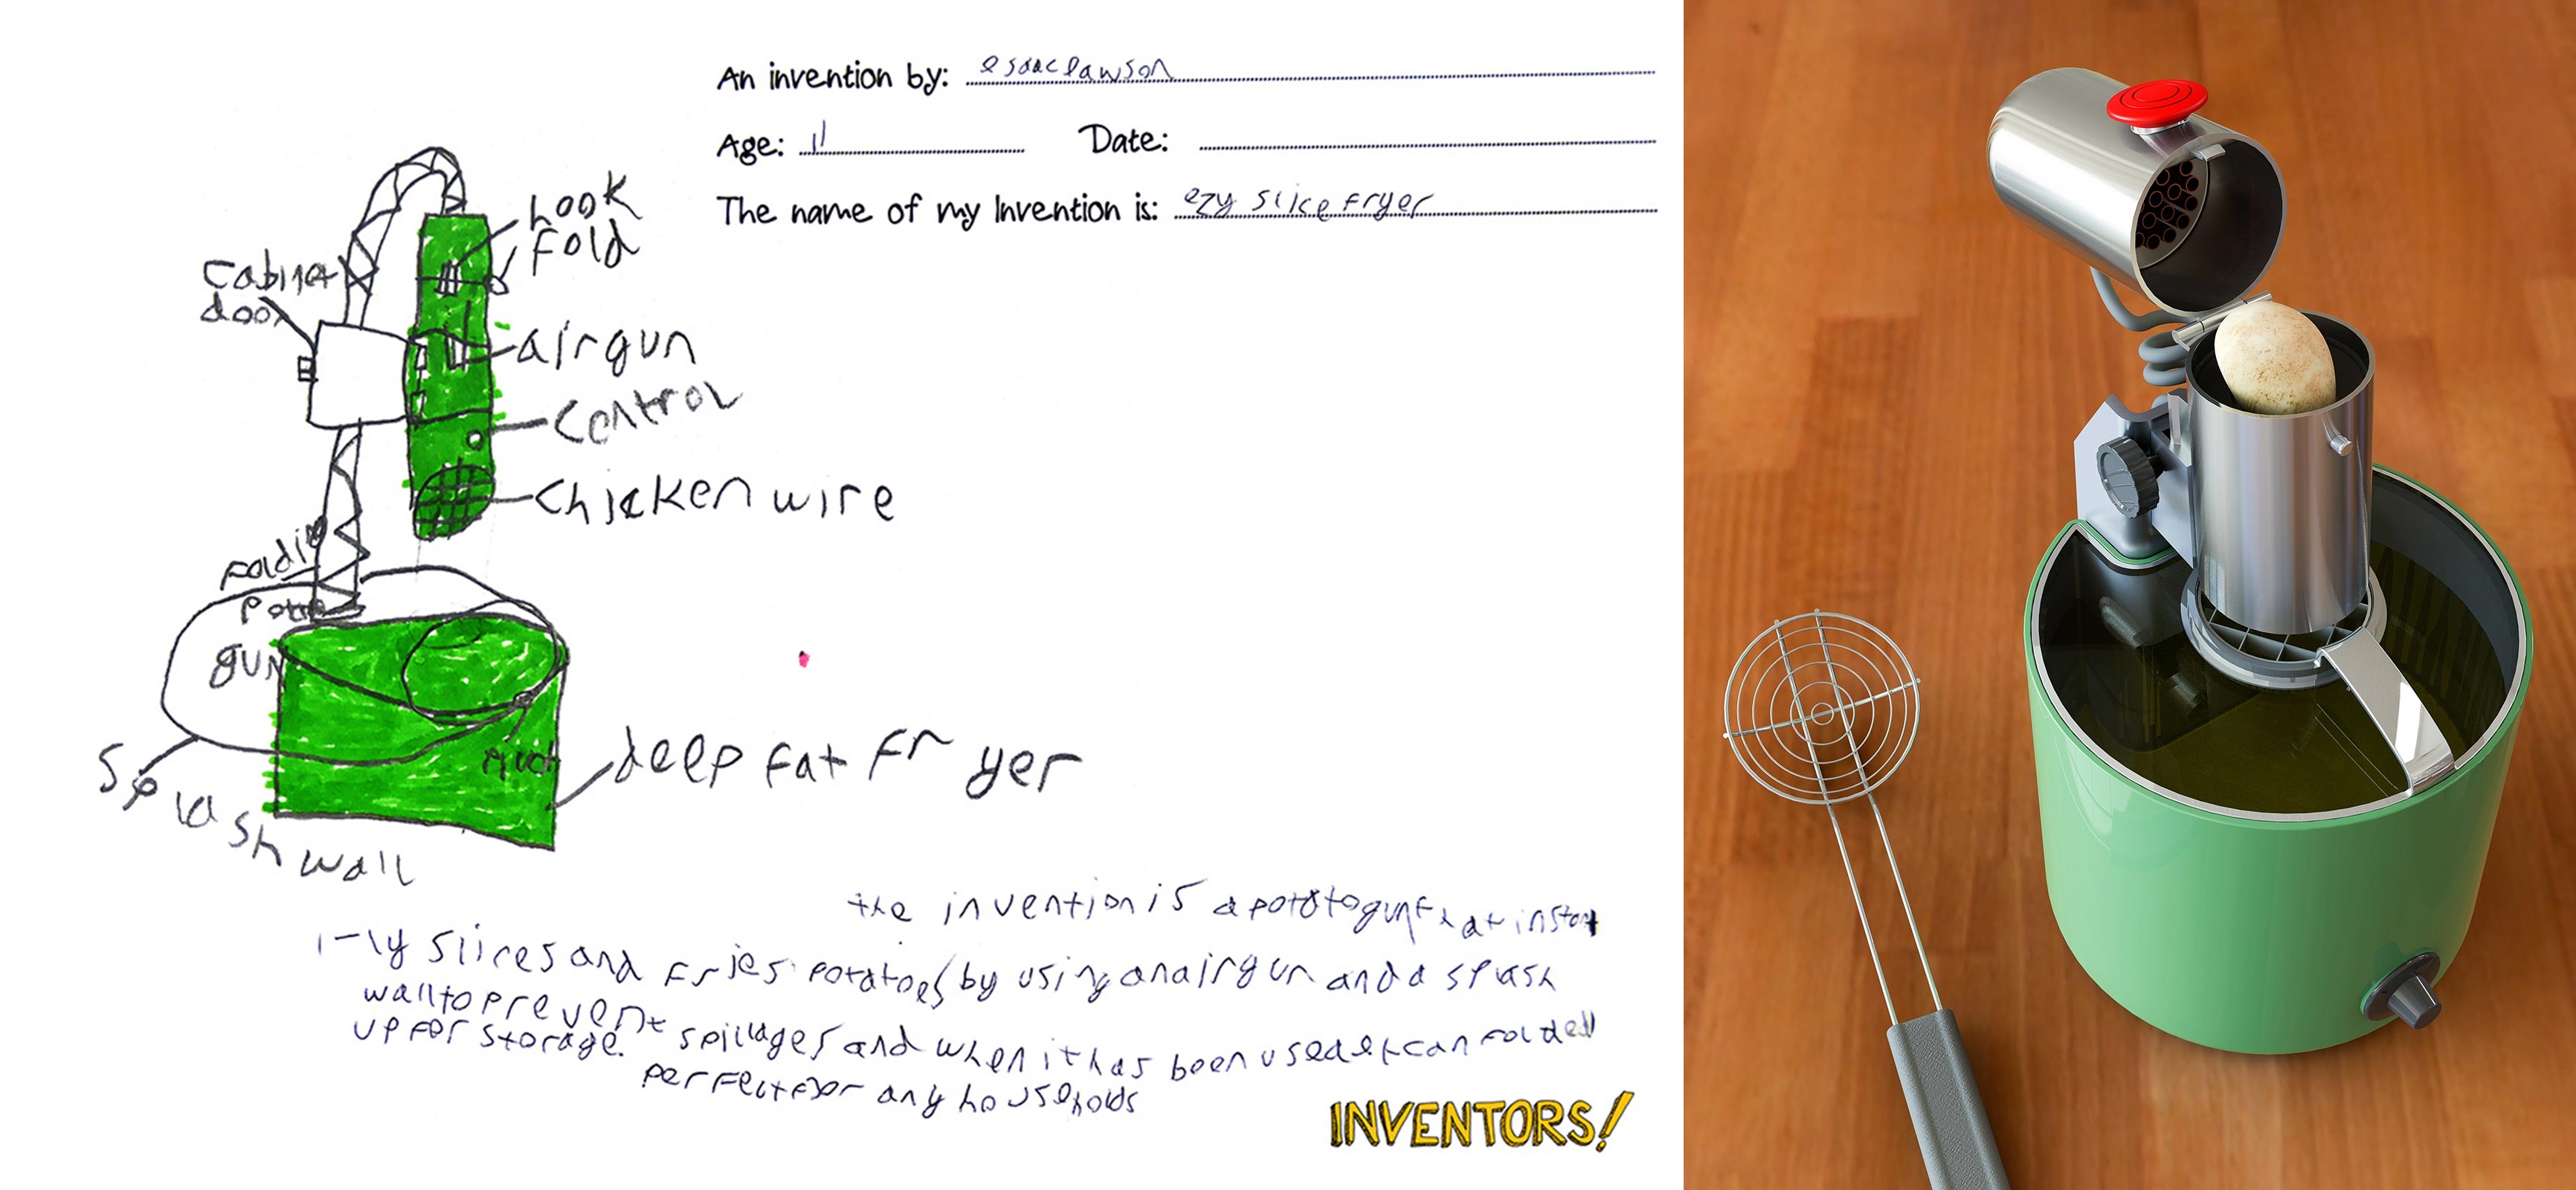 An invention by: esaac Lawson
Age: 11 Date:
The name of my Invention is: ezy Slice Fryer
hook
fold
Cabinet
door
airgun
Control
Chicken wire
gun
deep fat Fryer
Splash wall
the invention is a pototo gun that instant
-ly slices and fries potatoes by using an airgun and a splash
wall to prevent spillages and when it has been used it can folded
up for storage.
perfect for any households
INVENTORS!